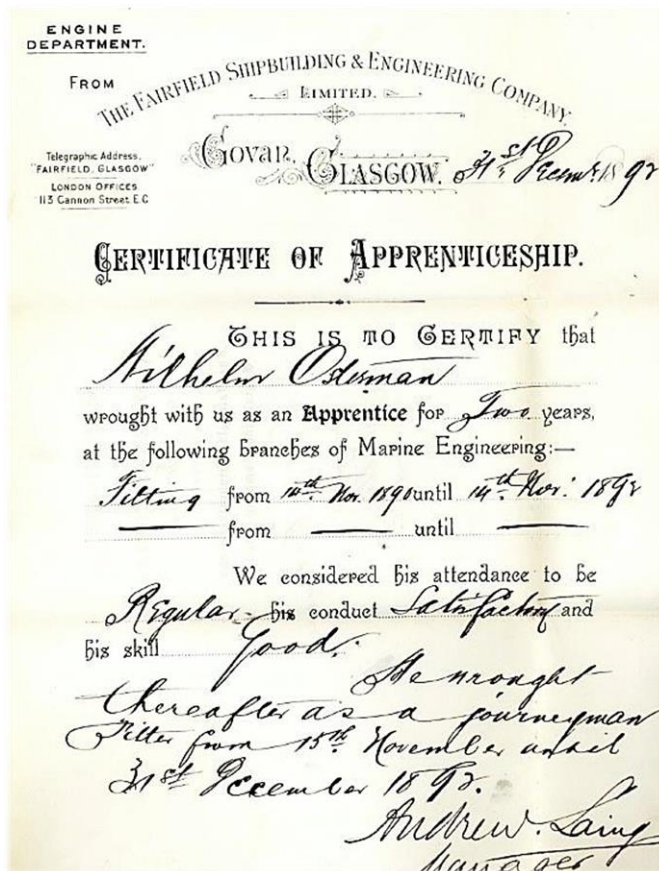 ENGINE
DEPARTMENT.
FROM
THE FAIRFIELD SHIPBUILDING & ENGINEERING COMPANY
LIMITED.
Telegraphic Address,
"FAIRFIELD, GLASGOW"
LONDON OFFICES
113 Cannon Street E.C
Govan, GLASGOW, 31st Decemr. 1892
CERTIFICATE OF APPRENTICESHIP.
THIS IS TO CERTIFY that
Wilhelm Osterman
wrought with us as an Apprentice for Two years,
at the following branches of Marine Engineering:—
Fitting from 14th Nov. 1890 until 14th Nov: 1892
from until
We considered his attendance to be
Regular - his conduct Satisfactory and
his skill Good.
He wrought
thereafter as a journeyman
Fitter from 15th November until
31st December 1892.
Andrew. Laing
Manager